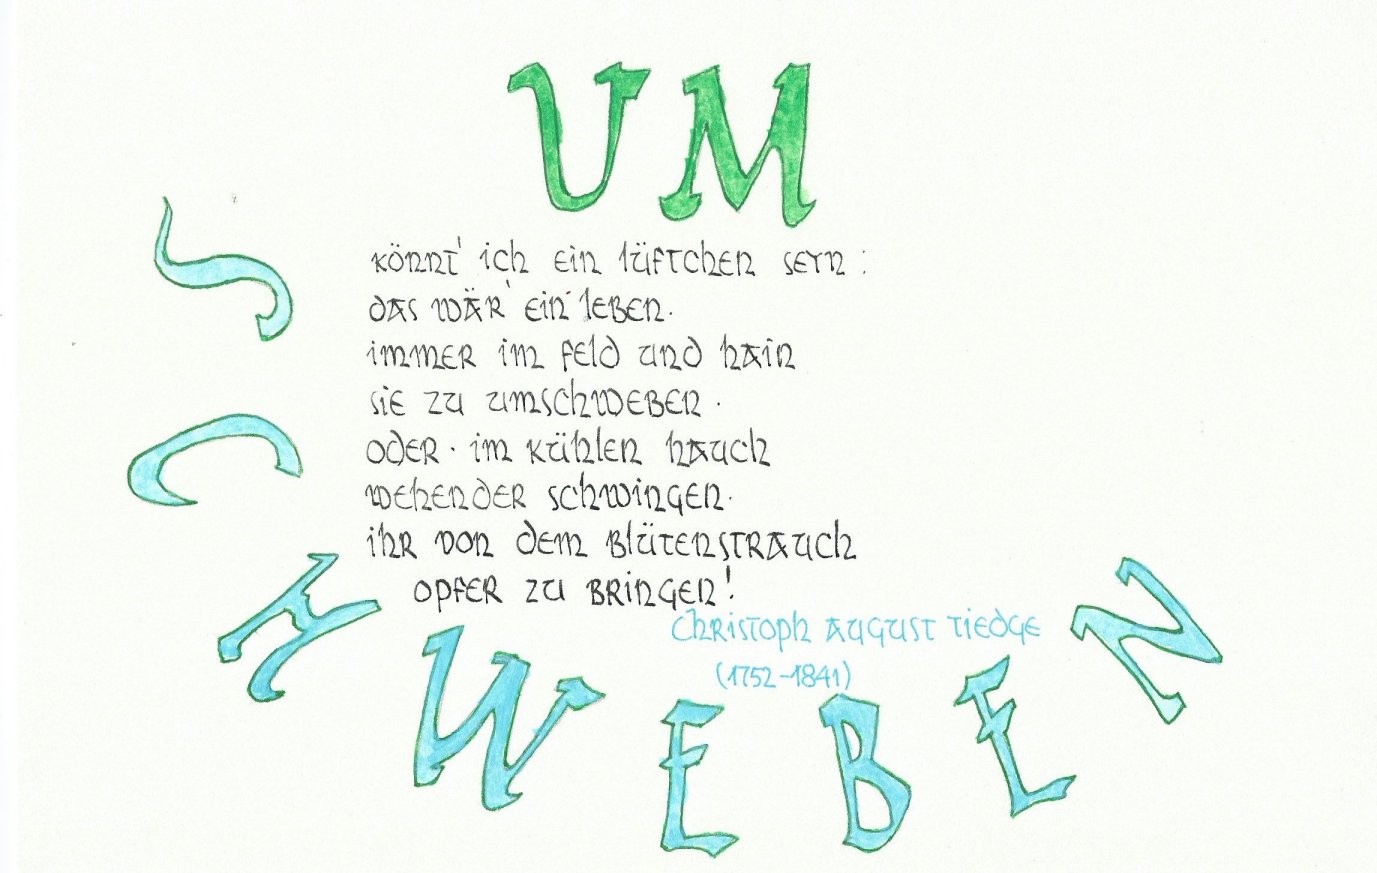 UM
könnt' ich ein lüftchen seyn:
das wär' ein leben.
immer im feld und hain
sie zu umschweben.
oder. im kühlen hauch
wehender schwingen.
ihr von dem blütenstrauch
opfer zu bringen!
Christoph August Tiedge
(1752-1841)
SCHWEBEN